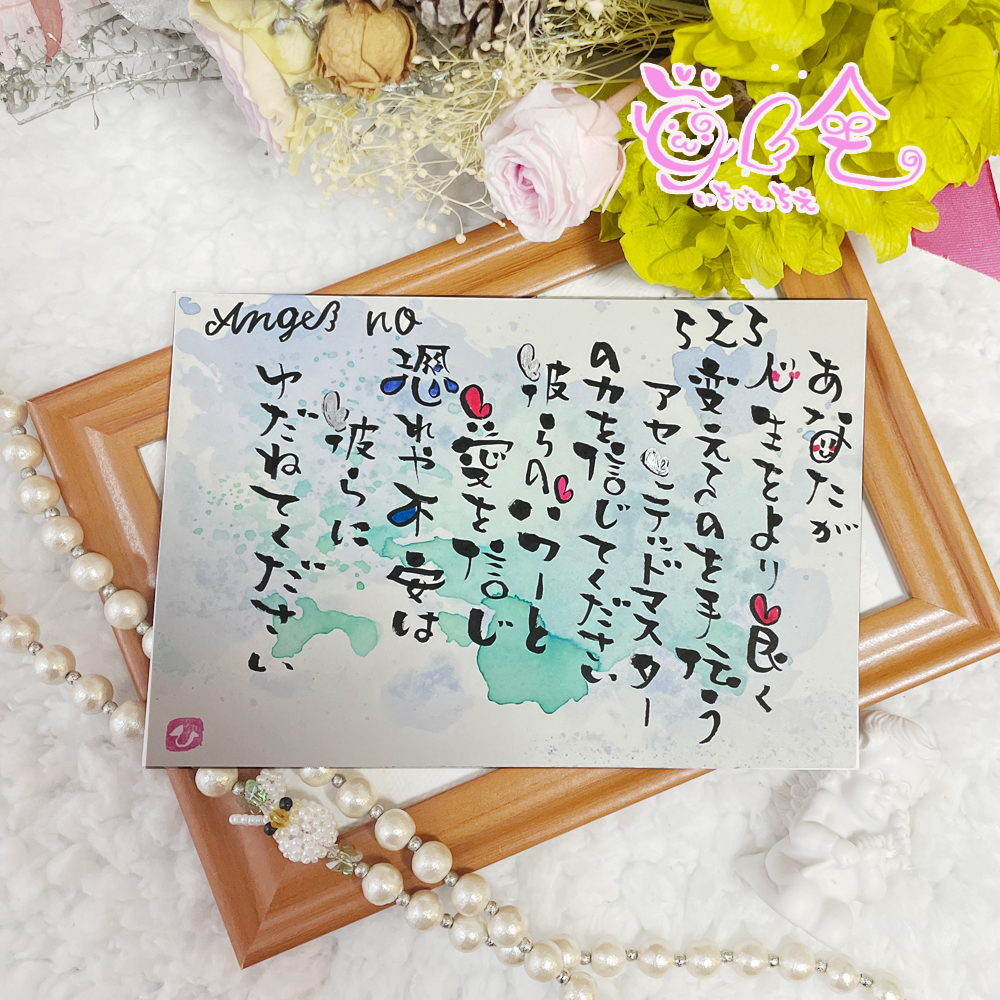 Angel no
523
あなたが
人生をより良く
変えるのを手伝う
アセンデッドマスター
の力を信じてください
彼らのパワーと
愛を信じ
恐れや不安は
彼らに
ゆだねてください
いちごいちえ